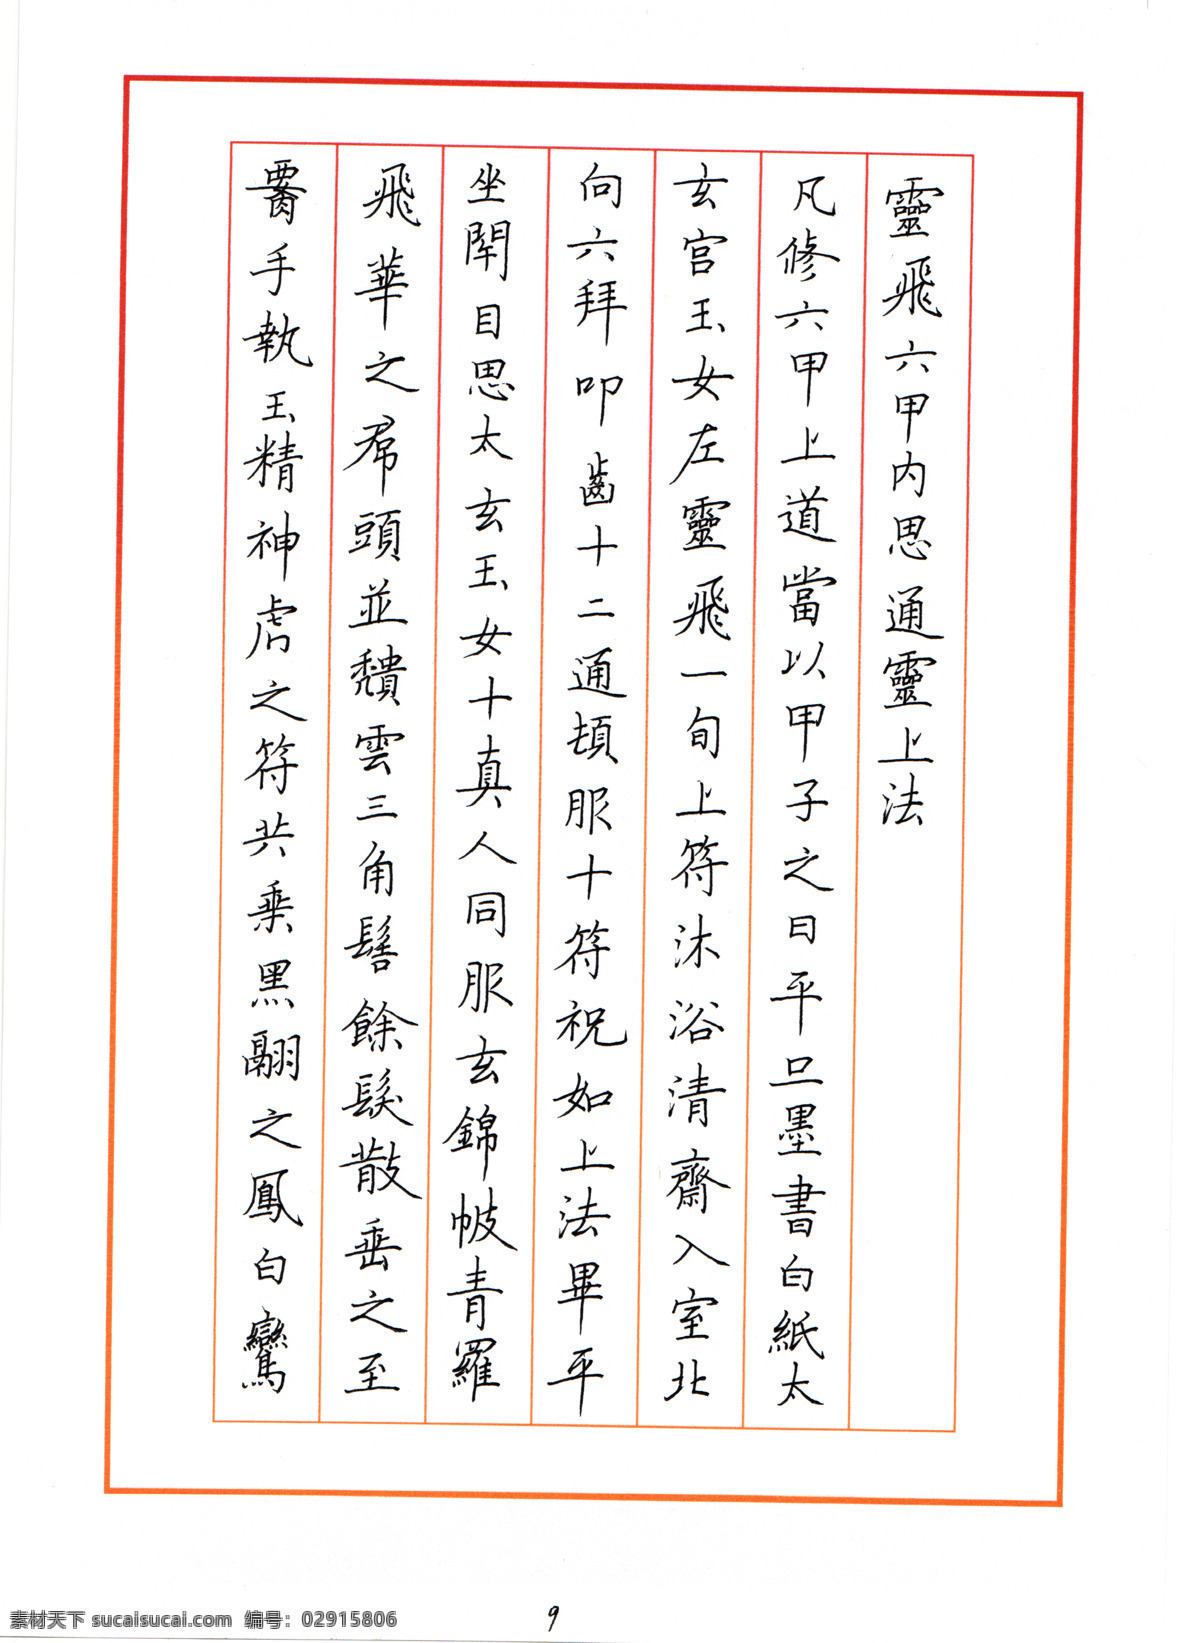 靈飛六甲內思通靈上法
凡修六甲上道當以甲子之日平旦墨書白紙太
玄宮玉女左靈飛一旬上符沐浴清齋入室北
向六拜叩齒十二通頓服十符祝如上法畢平
坐閉目思太玄玉女十真人同服玄錦帔青羅
飛華之帬頭並穨雲三角髻餘髮散垂之至
署手執玉精神虎之符共乗黑翮之鳳白鸞
9
素材天下 sucaisucai.com 编号：02915806